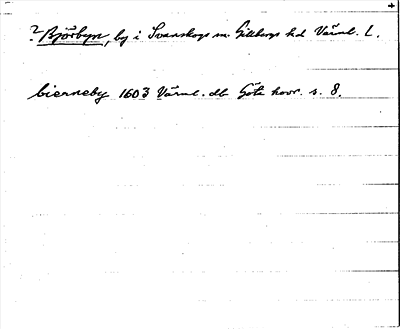 ? Björbyn, by i Svanskogs sn. Gillbergs hd Värml. L.
bierneby 1603 Värml. db Göta hovr. s. 8.